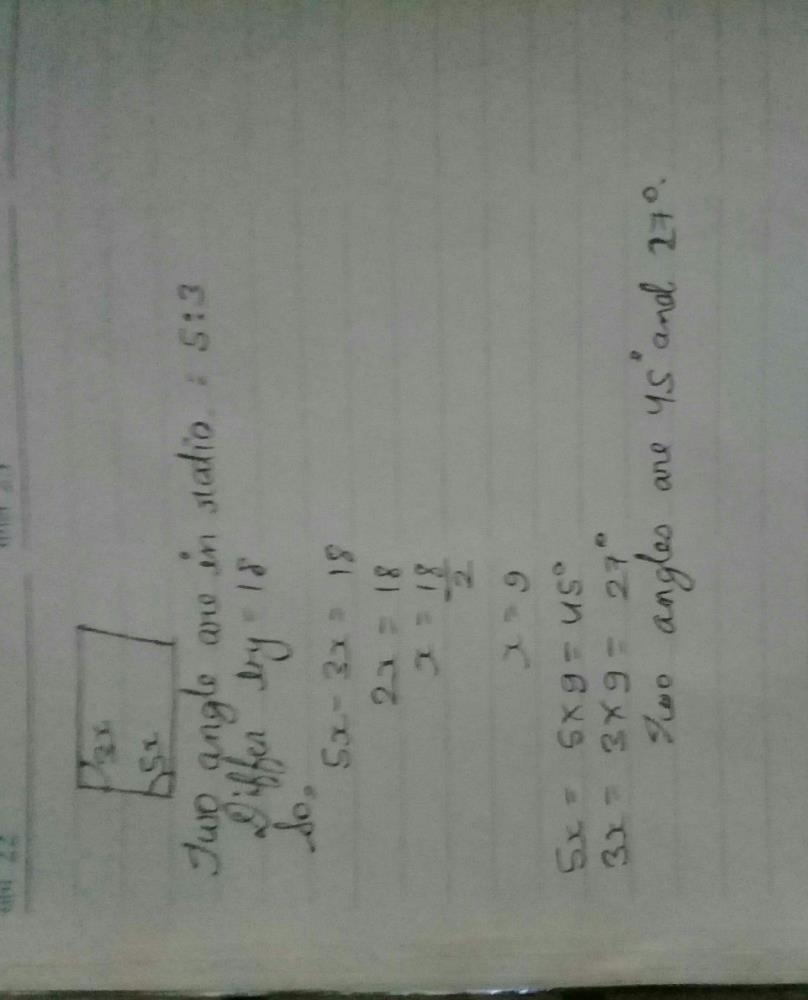 3x
5x
Two angle are in ratio : 5:3
Differ by = 18
So,
5x - 3x = 18
2x = 18
x = 18/2
x = 9
5x = 5×9 = 45°
3x = 3×9 = 27°
Two angles are 45° and 27°.